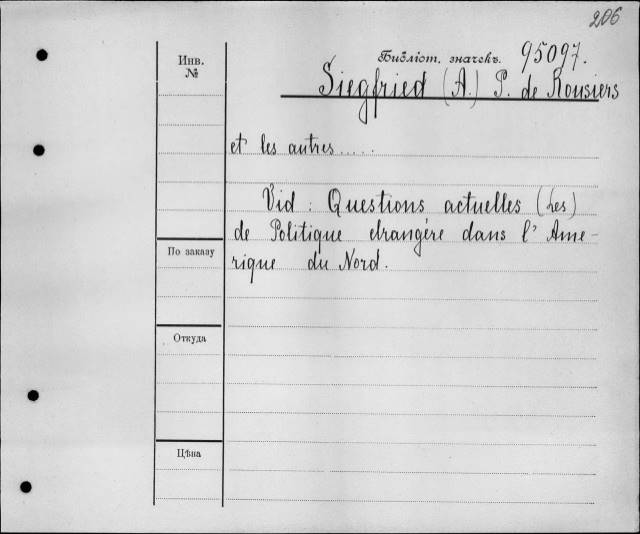 206
Инв. №
Библіот. значекъ. 95097.
Siegfried (A.) P. de Rousiers
et les autres.....
Vid: Questions actuelles (Les)
de Politique etrangère dans l'Ame-
rique du Nord.
По заказу
Откуда
Цѣна